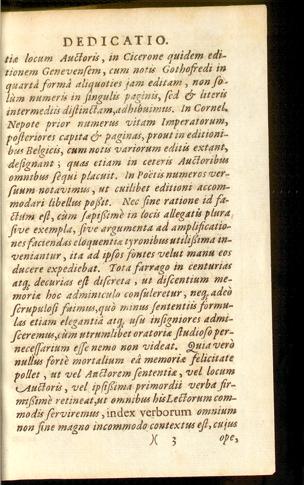 DEDICATIO.
tiæ locum Auctoris, in Cicerone quidem edi-
tionem Genevensem, cum notis Gothofredi in
quartâ formâ aliquoties jam editam, non so-
lùm numeris in singulis paginis, sed & literis
intermediis distinctam, adhibuimus. In Cornel.
Nepote prior numerus vitam Imperatorum,
posteriores capita & paginas, prout in editioni-
bus Belgicis, cum notis variorum editis extant,
designant; quas etiam in ceteris Auctoribus
omnibus sequi placuit. In Poëtis numeros ver-
suum notavimus, ut cuilibet editioni accom-
modari libellus possit. Nec sine ratione id fa-
ctum est, cùm sæpissimè in locis allegatis plura,
sive exempla, sive argumenta ad amplificatio-
nes faciendas eloquentiæ tyronibus utilissima in-
veniantur, ita ad ipsos fontes velut manu eos
ducere expediebat. Tota farrago in centurias
atq; decurias est discreta, ut discentium me-
moriæ hoc adminiculo consuleretur, neq; adeò
scrupulosi fuimus, quò minus sententiis formu-
las etiam elegantiâ atq; usu insigniores admi-
sceremus, cùm utrumlibet oratoriæ studioso per-
necessarium esse nemo non videat. Quia verò
nullus fortè mortalium eâ memoriæ felicitate
pollet, ut vel Auctorem sententiæ, vel locum
Auctoris, vel ipsissima primordii verba fir-
missimè retineat, ut omnibus his Lectorum com-
modis serviremus, index verborum omnium
non sine magno incommodo contextus est, cujus
)( 3 ope,